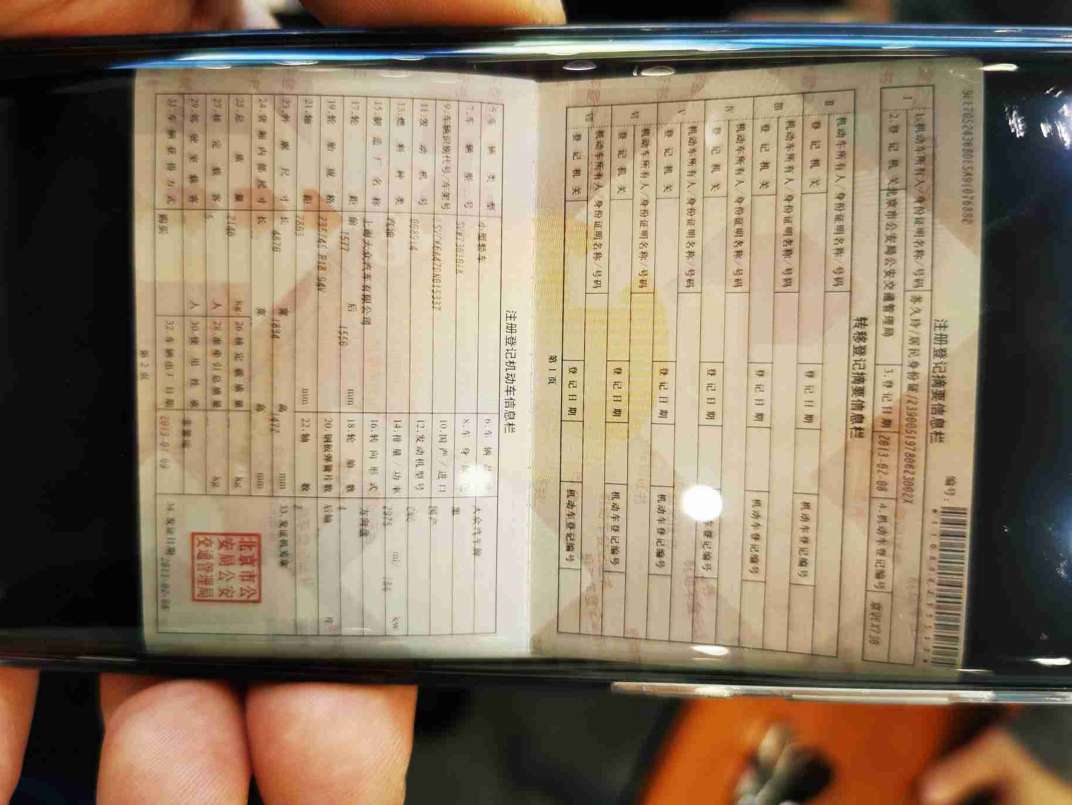 注册登记摘要信息栏
编号:
Ⅰ
1.机动车所有人/身份证明名称/号码
2.登记机关 北京市公安局公安交通管理局 3.登记日期 2013-02-08 4.机动车登记编号
转移登记摘要信息栏
Ⅱ 机动车所有人/身份证明名称/号码
登记机关 登记日期 机动车登记编号
Ⅲ 机动车所有人/身份证明名称/号码
登记机关 登记日期 机动车登记编号
Ⅳ 机动车所有人/身份证明名称/号码
登记机关 登记日期 机动车登记编号
Ⅴ 机动车所有人/身份证明名称/号码
登记机关 登记日期 机动车登记编号
Ⅵ 机动车所有人/身份证明名称/号码
登记机关 登记日期 机动车登记编号
Ⅶ 机动车所有人/身份证明名称/号码
登记机关 登记日期 机动车登记编号
第1页
注册登记机动车信息栏
5.车辆类型 小型轿车 6.车辆品牌 大众汽车牌
7.车辆型号 8.车身颜色 黑
9.车辆识别代号/车架号 10.国产/进口 国产
11.发动机号 12.发动机型号
13.燃料种类 汽油 14.排量/功率 ml kw
15.制造厂名称 上海大众汽车有限公司 16.转向形式 方向盘
17.轮距 前 1577 后 1550 mm 18.轮胎数 4
19.轮胎规格 20.钢板弹簧片数 后轴 片
21.轴距 2803 mm 22.轴数 2
23.外廓尺寸 长 4870 宽 1834 高 1472 mm 33.发证机关章
24.货厢内部尺寸 长 宽 高 mm
25.总质量 kg 26.核定载质量 kg
27.核定载客 5 人 28.准牵引总质量 kg
29.驾驶室载客 人 30.使用性质
31.车辆获得方式 购买 32.车辆出厂日期 34.发证日期 2013-02-08
北京市公
安局公安
交通管理局
第2页